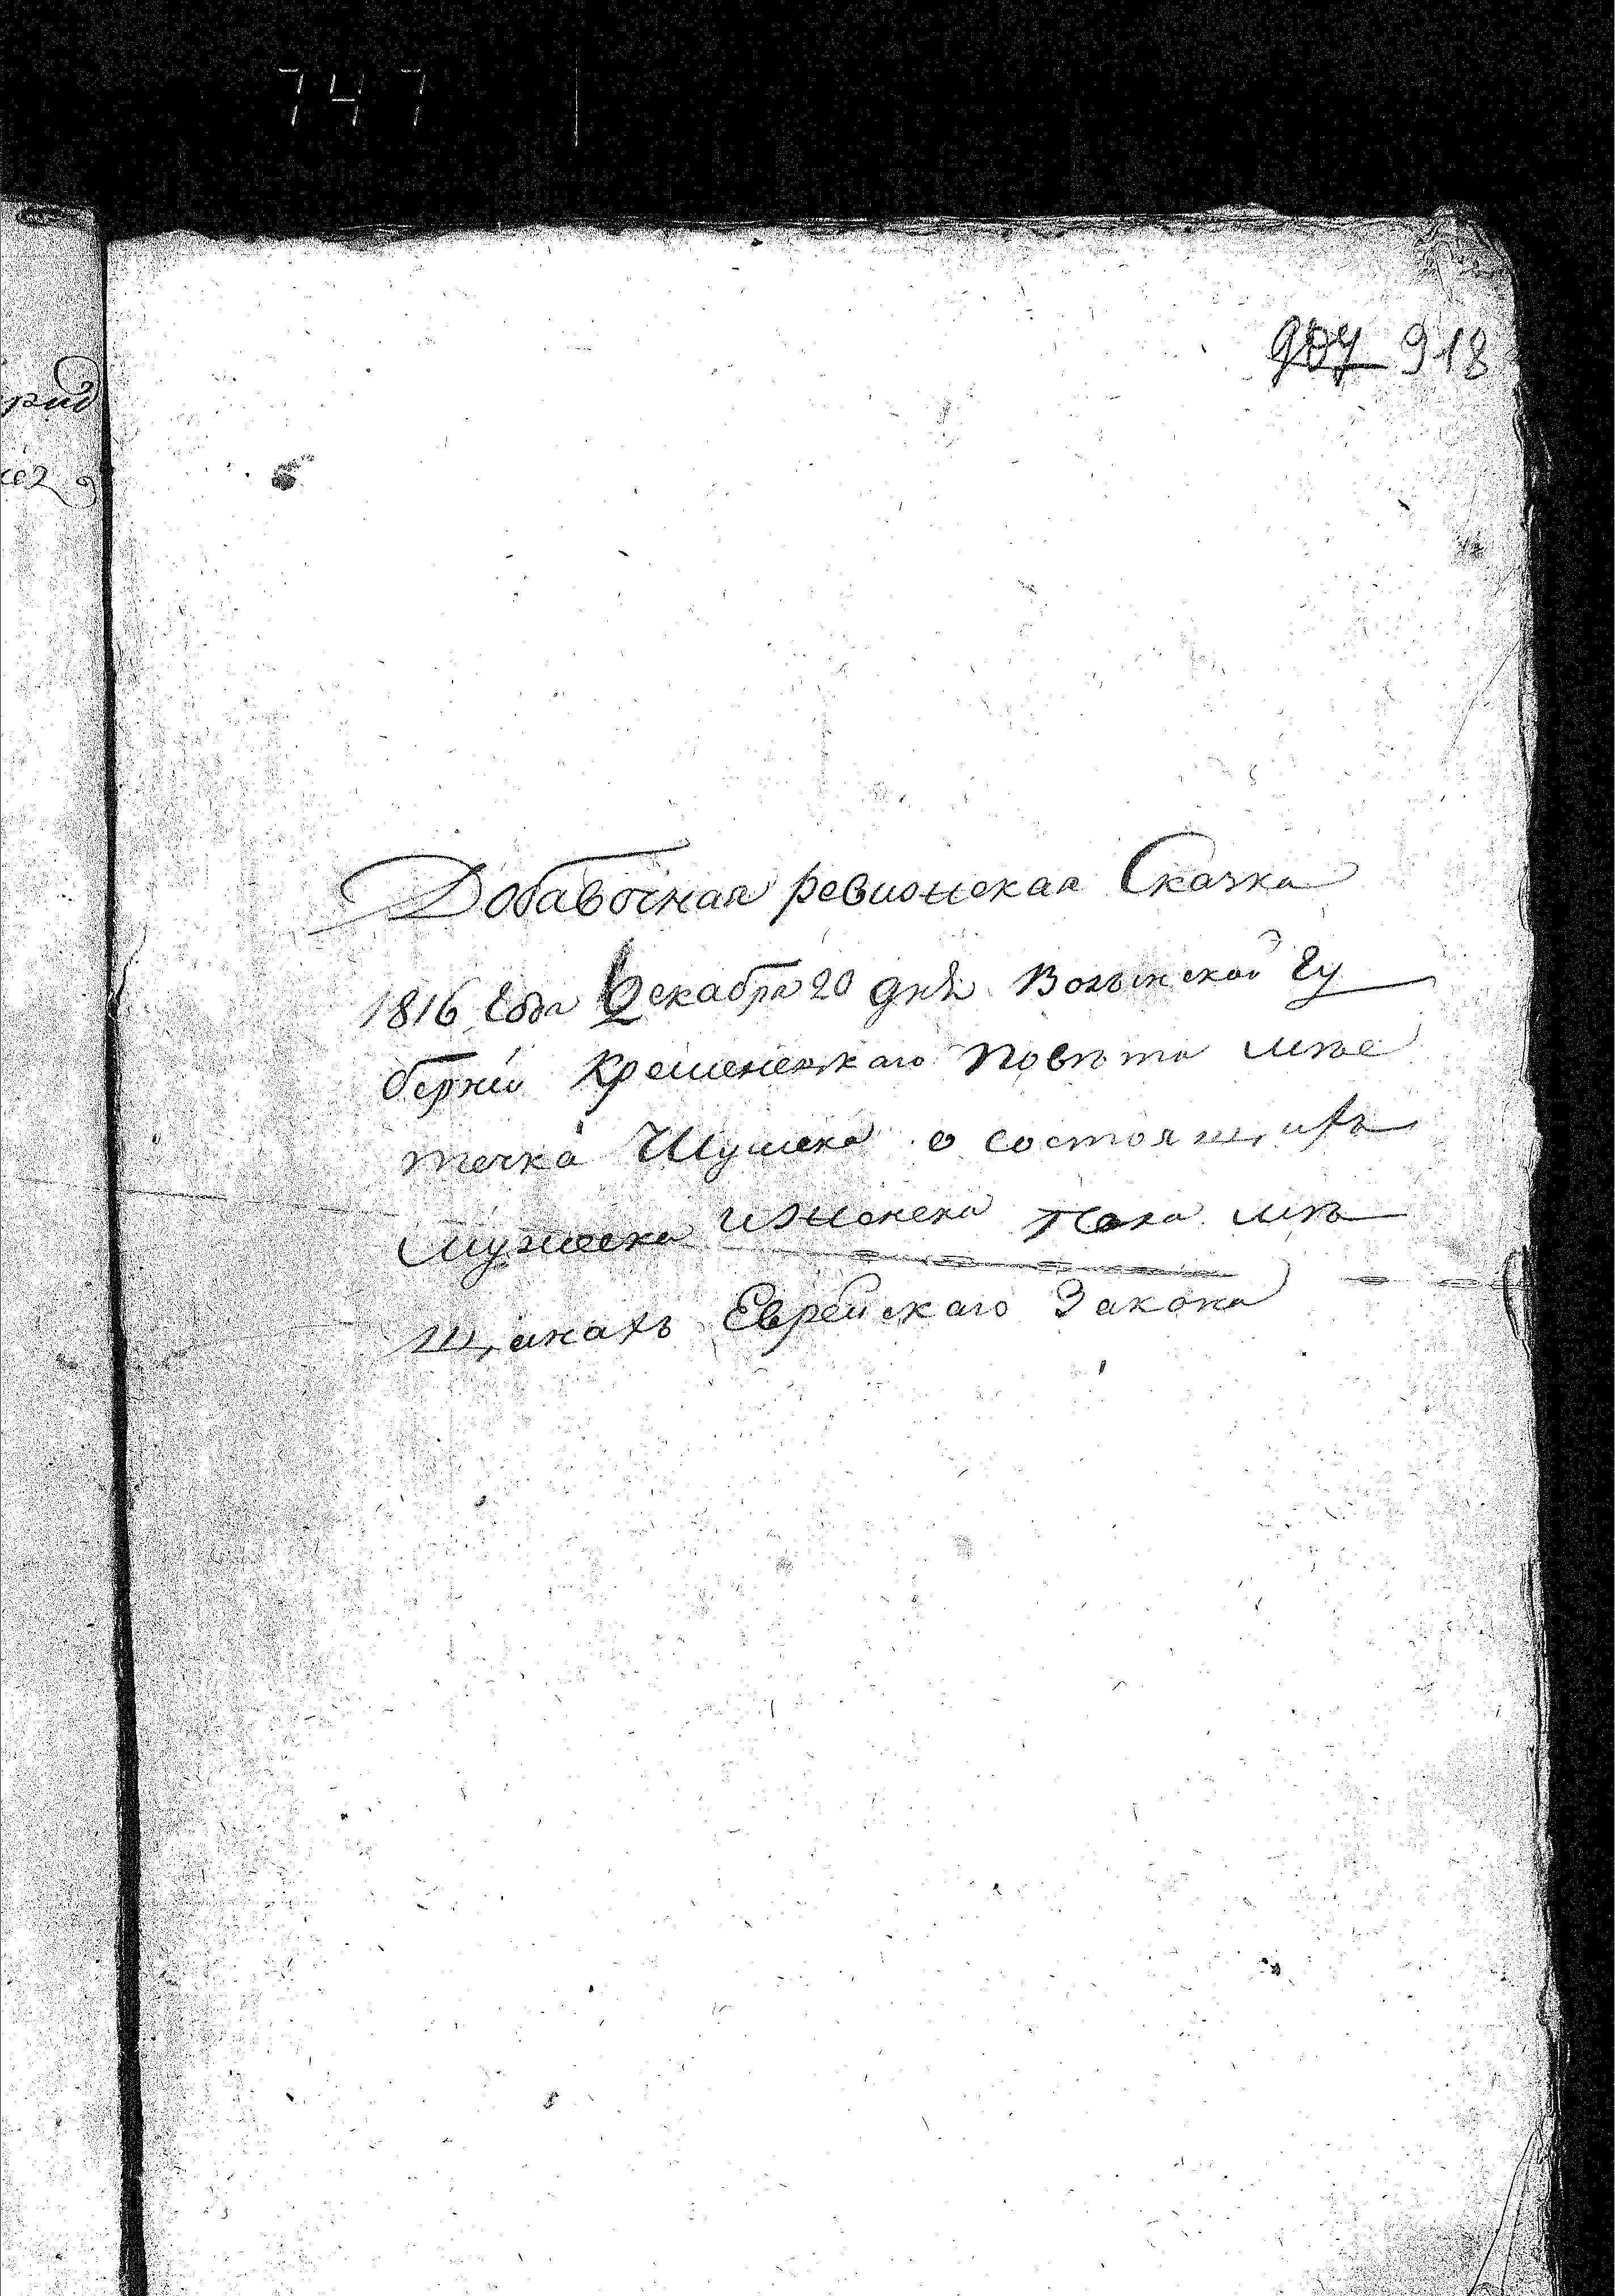 747
907 918
Добавочная ревизская Сказка
1816 Года Декабря 20 дня Волынской Гу
берніи Кременецкаго Повѣта мѣс
течка Шумска о состоящихъ
Мужеска и женска пола мѣ
щанахъ Еврейскаго Закона